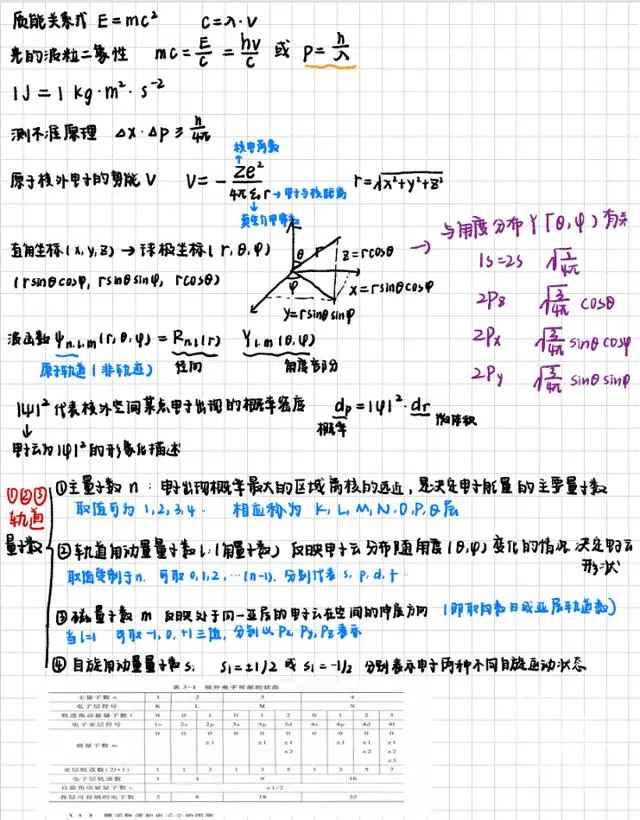 质能关系式 E=mc² c=λ·ν
光的波粒二象性 mc=E/c=hν/c 或 p=h/λ
1J=1 kg·m²·s⁻²
测不准原理 Δx·Δp≥h/4π
核电荷数
原子核外电子的势能V V=-Ze²/4πε₀r →电子与核距离 r=√x²+y²+z²
直角坐标(x,y,z)→球极坐标(r,θ,φ)
(rsinθcosφ, rsinθsinφ, rcosθ)
θ r z=rcosθ
φ x=rsinθcosφ
y=rsinθsinφ
→ 与角度分布Y(θ,φ)有关
1s=2s √1/4π
2Pz √3/4π cosθ
2Px √3/4π sinθcosφ
2Py √3/4π sinθsinφ
波函数 ψn,l,m(r,θ,φ)=Rn,l(r) Yl,m(θ,φ)
原子轨道(非轨迹) 径向 角度部分
|ψ|²代表核外空间某点电子出现的概率密度 dp=|ψ|²·dτ 微体积
概率
↓
电子云为|ψ|²的形象化描述
①②③
轨道
量子数
①主量子数 n:电子出现概率最大的区域离核的远近,是决定电子能量的主要量子数
取值可为1,2,3,4·· 相应称为 K,L,M,N,O,P,Q层
②轨道角动量量子数l(角量子数) 反映电子云分布随角度(θ,φ)变化的情况 决定电子云
形状
取值受制于n,可取0,1,2,···(n-1),分别代表 s,p,d,f··
③磁量子数 m 反映处于同一亚层的电子云在空间的伸展方向
当l=1 可取-1,0,+1三值,分别以Px,Py,Pz表示
④自旋角动量量子数si si=±1/2 或 si=-1/2 分别表示电子两种不同自旋运动状态
表3-1 核外电子可能的状态
主量子数 n 1 2 3 4
电子层符号 K L M N
轨道角动量量子数 l 0 0 1 0 1 2 0 1 2 3
电子亚层符号 1s 2s 2p 3s 3p 3d 4s 4p 4d 4f
0 0 0 0 0 0 0 0 0 0
磁量子数 m ±1 ±1 ±1 ±1 ±1 ±1
±2 ±2 ±2
±3
亚层轨道数(2l+1) 1 1 3 1 3 5 1 3 5 7
电子层轨道数 1 4 9 16
自旋角动量量子数 ±1/2
各层可容纳的电子数 2 8 18 32